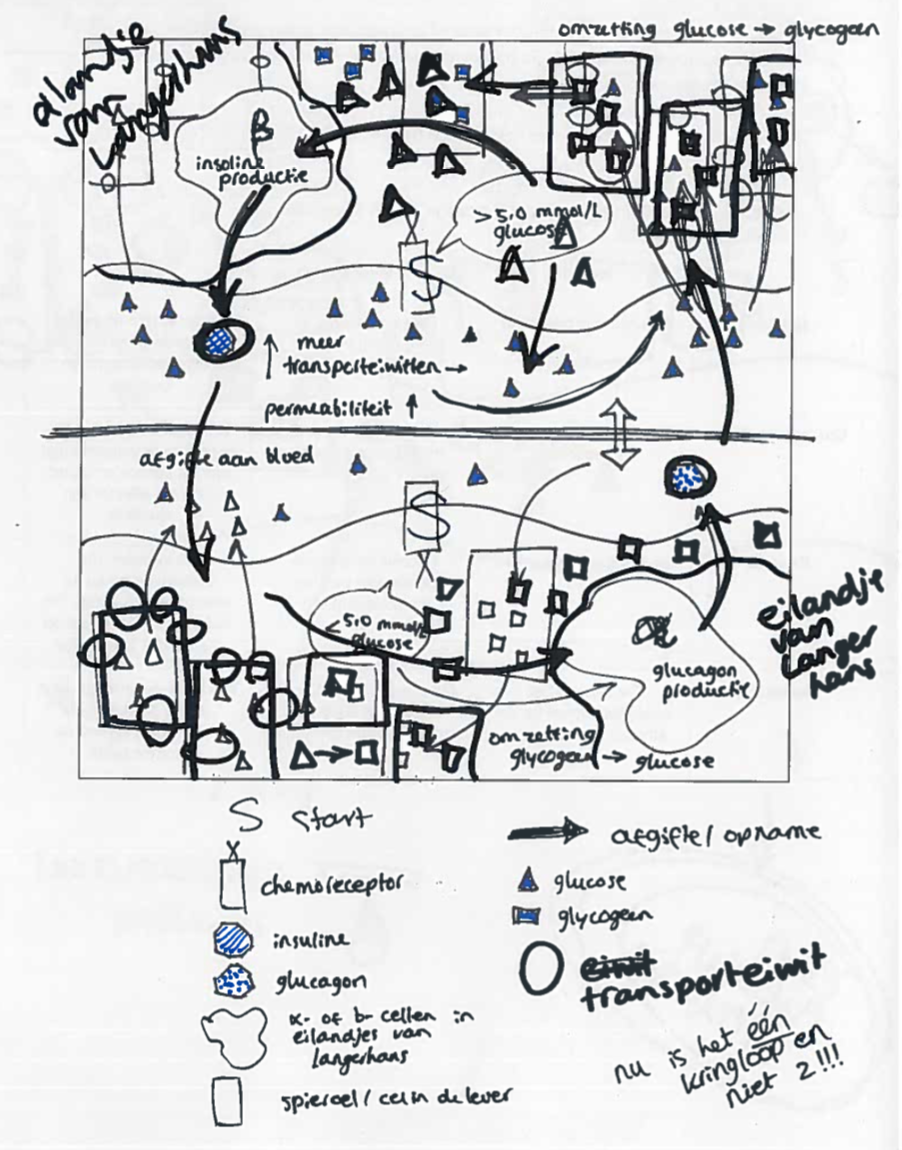 omzetting glucose → glycogeen
eilandje
van
Langerhans
β
insuline
productie
>5.0 mmol/L
glucose
S
↑ meer
transporteiwitten →
permeabiliteit ↑
afgifte aan bloed
S
<5.0 mmol/L
glucose
α
glucagon
productie
eilandje
van
Langer
hans
omzetting
glycogeen → glucose
S start
chemoreceptor
insuline
glucagon
α- of b- cellen in
eilandjes van
langerhans
spiercel / cel in de lever
afgifte / opname
glucose
glycogeen
eiwit
transporteiwit
nu is het één
kringloop en
niet 2!!!